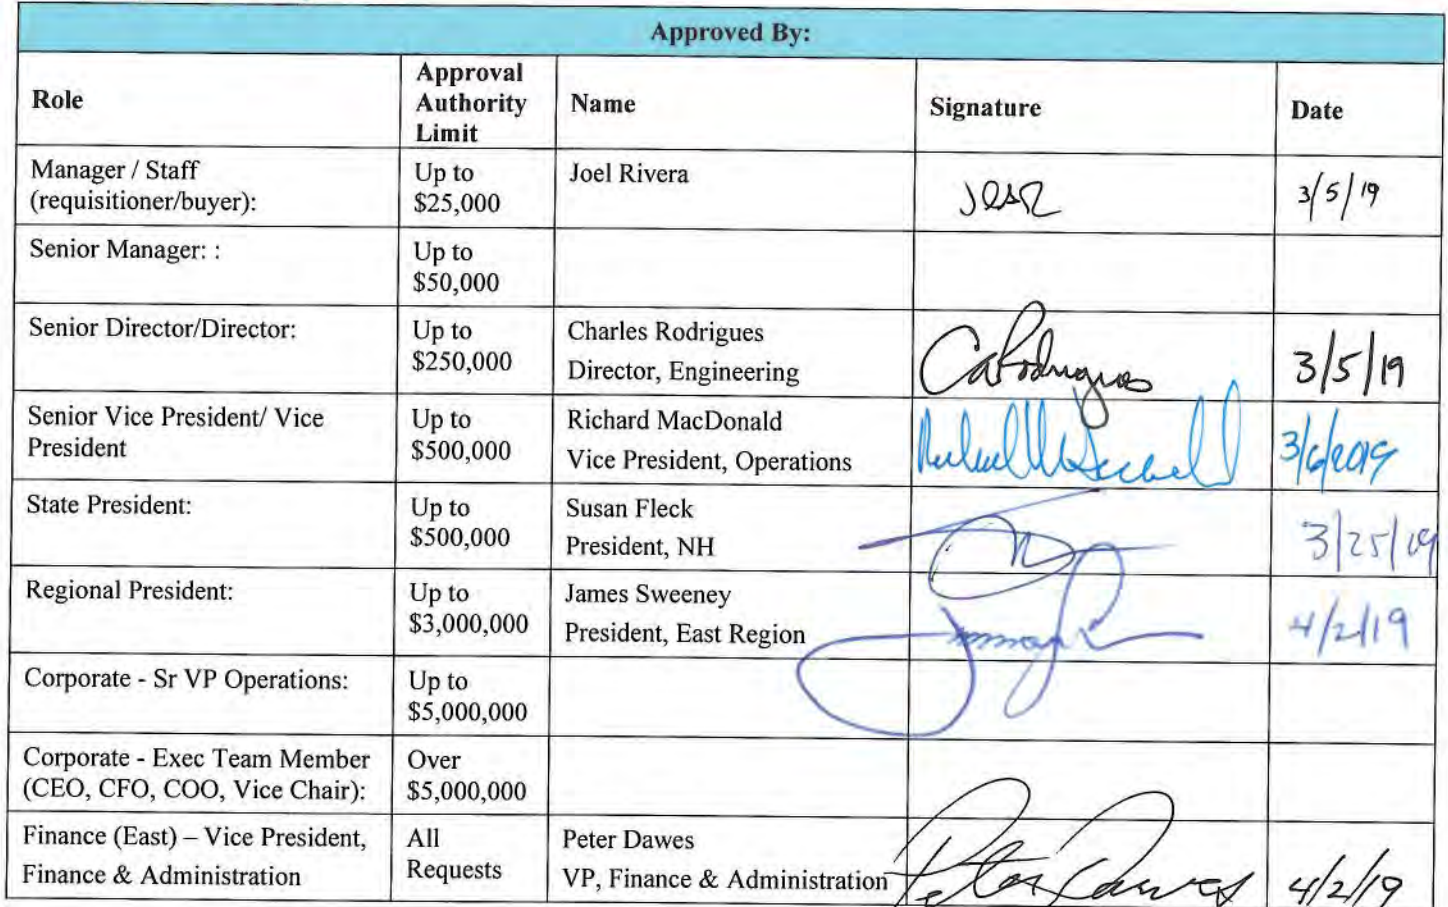 Approved By:
Role
Approval
Authority
Limit
Name
Signature
Date
Manager / Staff
(requisitioner/buyer):
Up to
$25,000
Joel Rivera
3/5/19
Senior Manager: :
Up to
$50,000
Senior Director/Director:
Up to
$250,000
Charles Rodrigues
Director, Engineering
CaRodrigues
3/5/19
Senior Vice President/ Vice
President
Up to
$500,000
Richard MacDonald
Vice President, Operations
3/6/2019
State President:
Up to
$500,000
Susan Fleck
President, NH
3/25/19
Regional President:
Up to
$3,000,000
James Sweeney
President, East Region
4/2/19
Corporate - Sr VP Operations:
Up to
$5,000,000
Corporate - Exec Team Member
(CEO, CFO, COO, Vice Chair):
Over
$5,000,000
Finance (East) – Vice President,
Finance & Administration
All
Requests
Peter Dawes
VP, Finance & Administration
Peter Dawes
4/2/19